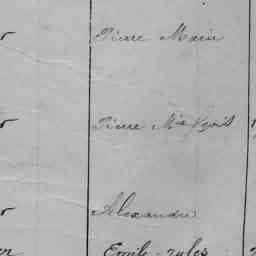 Pierre Marie
Pierre Mie Louis
Alexandre
Emile-Jules